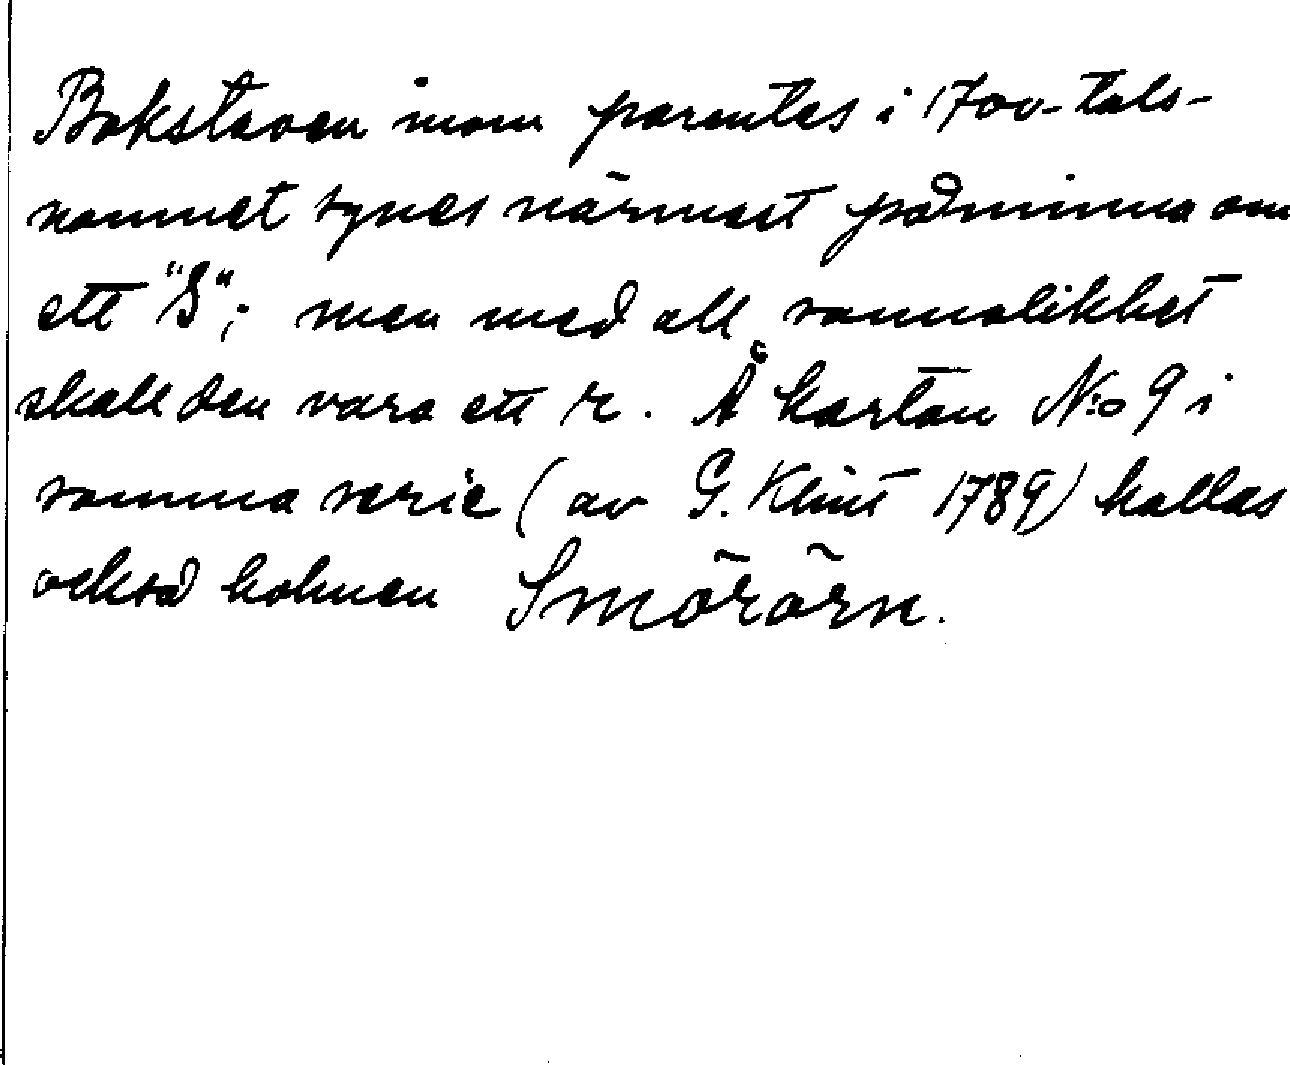 Bokstaven inom parentes i 1700-tals-
namnet synes närmast påminna om
ett "S"; men med all sannolikhet
skall den vara ett r. Å kartan N:o 9 i
samma serie (av G. Klint 1789) kallas
också holmen Smörörn.